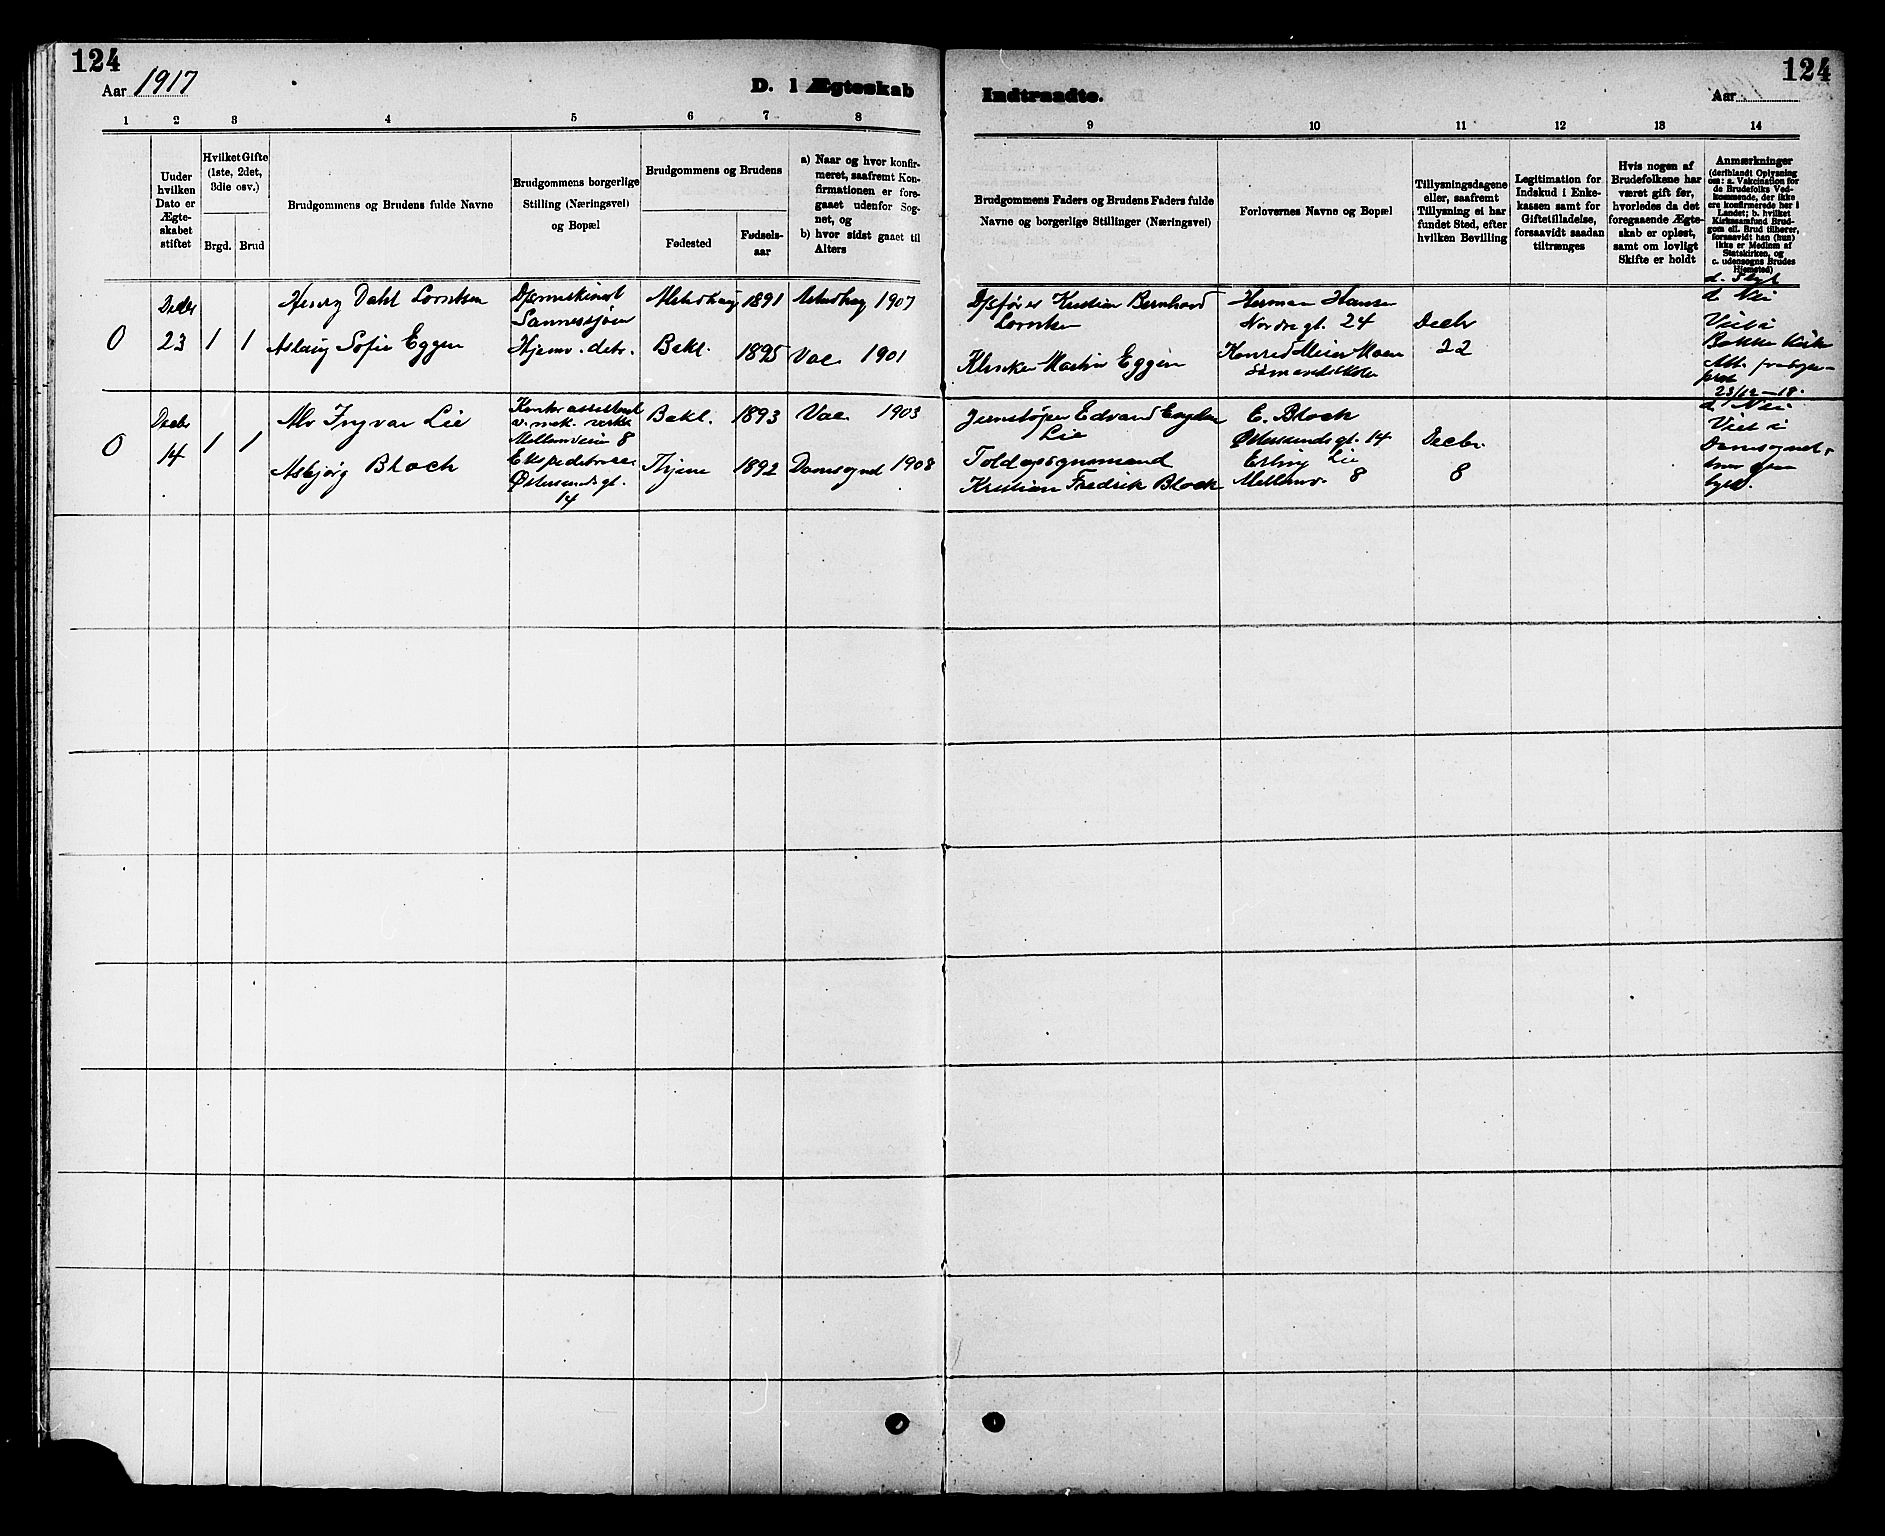 124
Aar 1917
D. 1 Ægteskab
Indtraadte.
Aar
124
1 2 3 4 5 6 7 8
9 10 11 12 13 14
Under hvilken Dato er Ægteskabet stiftet
Hvilket Gifte (1ste, 2det, 3die osv.)
Brgd. Brud
Brudgommens og Brudens fulde Navne
Brudgommens borgerlige Stilling (Næringsvei) og Bopæl
Brudgommens og Brudens
Fødested
Fødsels-aar
a) Naar og hvor konfir-
meret, saafremt Kon-
firmationen er fore-
gaaet udenfor Sog-
net, og
b) hvor sidst gaaet til
Alters
Brudgommens Faders og Brudens Faders fulde
Navne og borgerlige Stillinger (Næringsvei)
Forlovernes Navne og Bopæl
Tillysningsdagene
eller, saafremt
Tillysning ei har
fundet Sted, efter
hvilken Bevilling
Legitimation for
Indskud i Enke-
kassen samt for
Giftetilladelse,
forsaavidt saadan
tiltrænges
Hvis nogen af
Brudefolkene har
været gift før,
hvorledes da det
foregaaende Ægte-
skab er opløst,
samt om lovligt
Skifte er holdt
Anmærkninger
(deriblandt Oplysning
om: a. Vakcination for
de Brudefolks Ved-
kommende, der ikke
ere konfirmerede her i
Landet; b. hvilket
Kirkesamfund Brud-
gom ell. Brud tilhører,
forsaavidt han (hun)
ikke er Medlem af
Statskirken, og
c. udensogns Brudes
Hjemsted)
0
Decbr
23
1 1
Henry Dahl Lorntsen
Aslaug Sofie Eggen
Sannessjøen
Hjemv. detr.
Alstadhaug 1891 Alstadhaug 1907
Bakl. 1895 Vac 1901
Kristian Bernhard
Lorntsen
Klinker Martin Eggen
Herman Hansen
Nordregt. 24
Konrad Meier Moen
Decbr
22
d. Nei
Viet i
Bakke Kirke
23/12 - 18.
0
Decbr
14
1 1
Alv Ingvar Lie
Asbjørg Bloch
Kontorassistent
v. mek. verks
Mellemveien 8
Østersundsgt.
14
Bakl. 1893 Vac 1903
1892 Domsognet 1908
Jernstøper Edvard
Lie
Toldopsynsmand
Kristian Fredrik Bloch
E. Bloch
Østersundsgt. 14
Erling Lie
Mellemv. 8
Decbr.
8
d. Nei
Viet i
Domsognet,